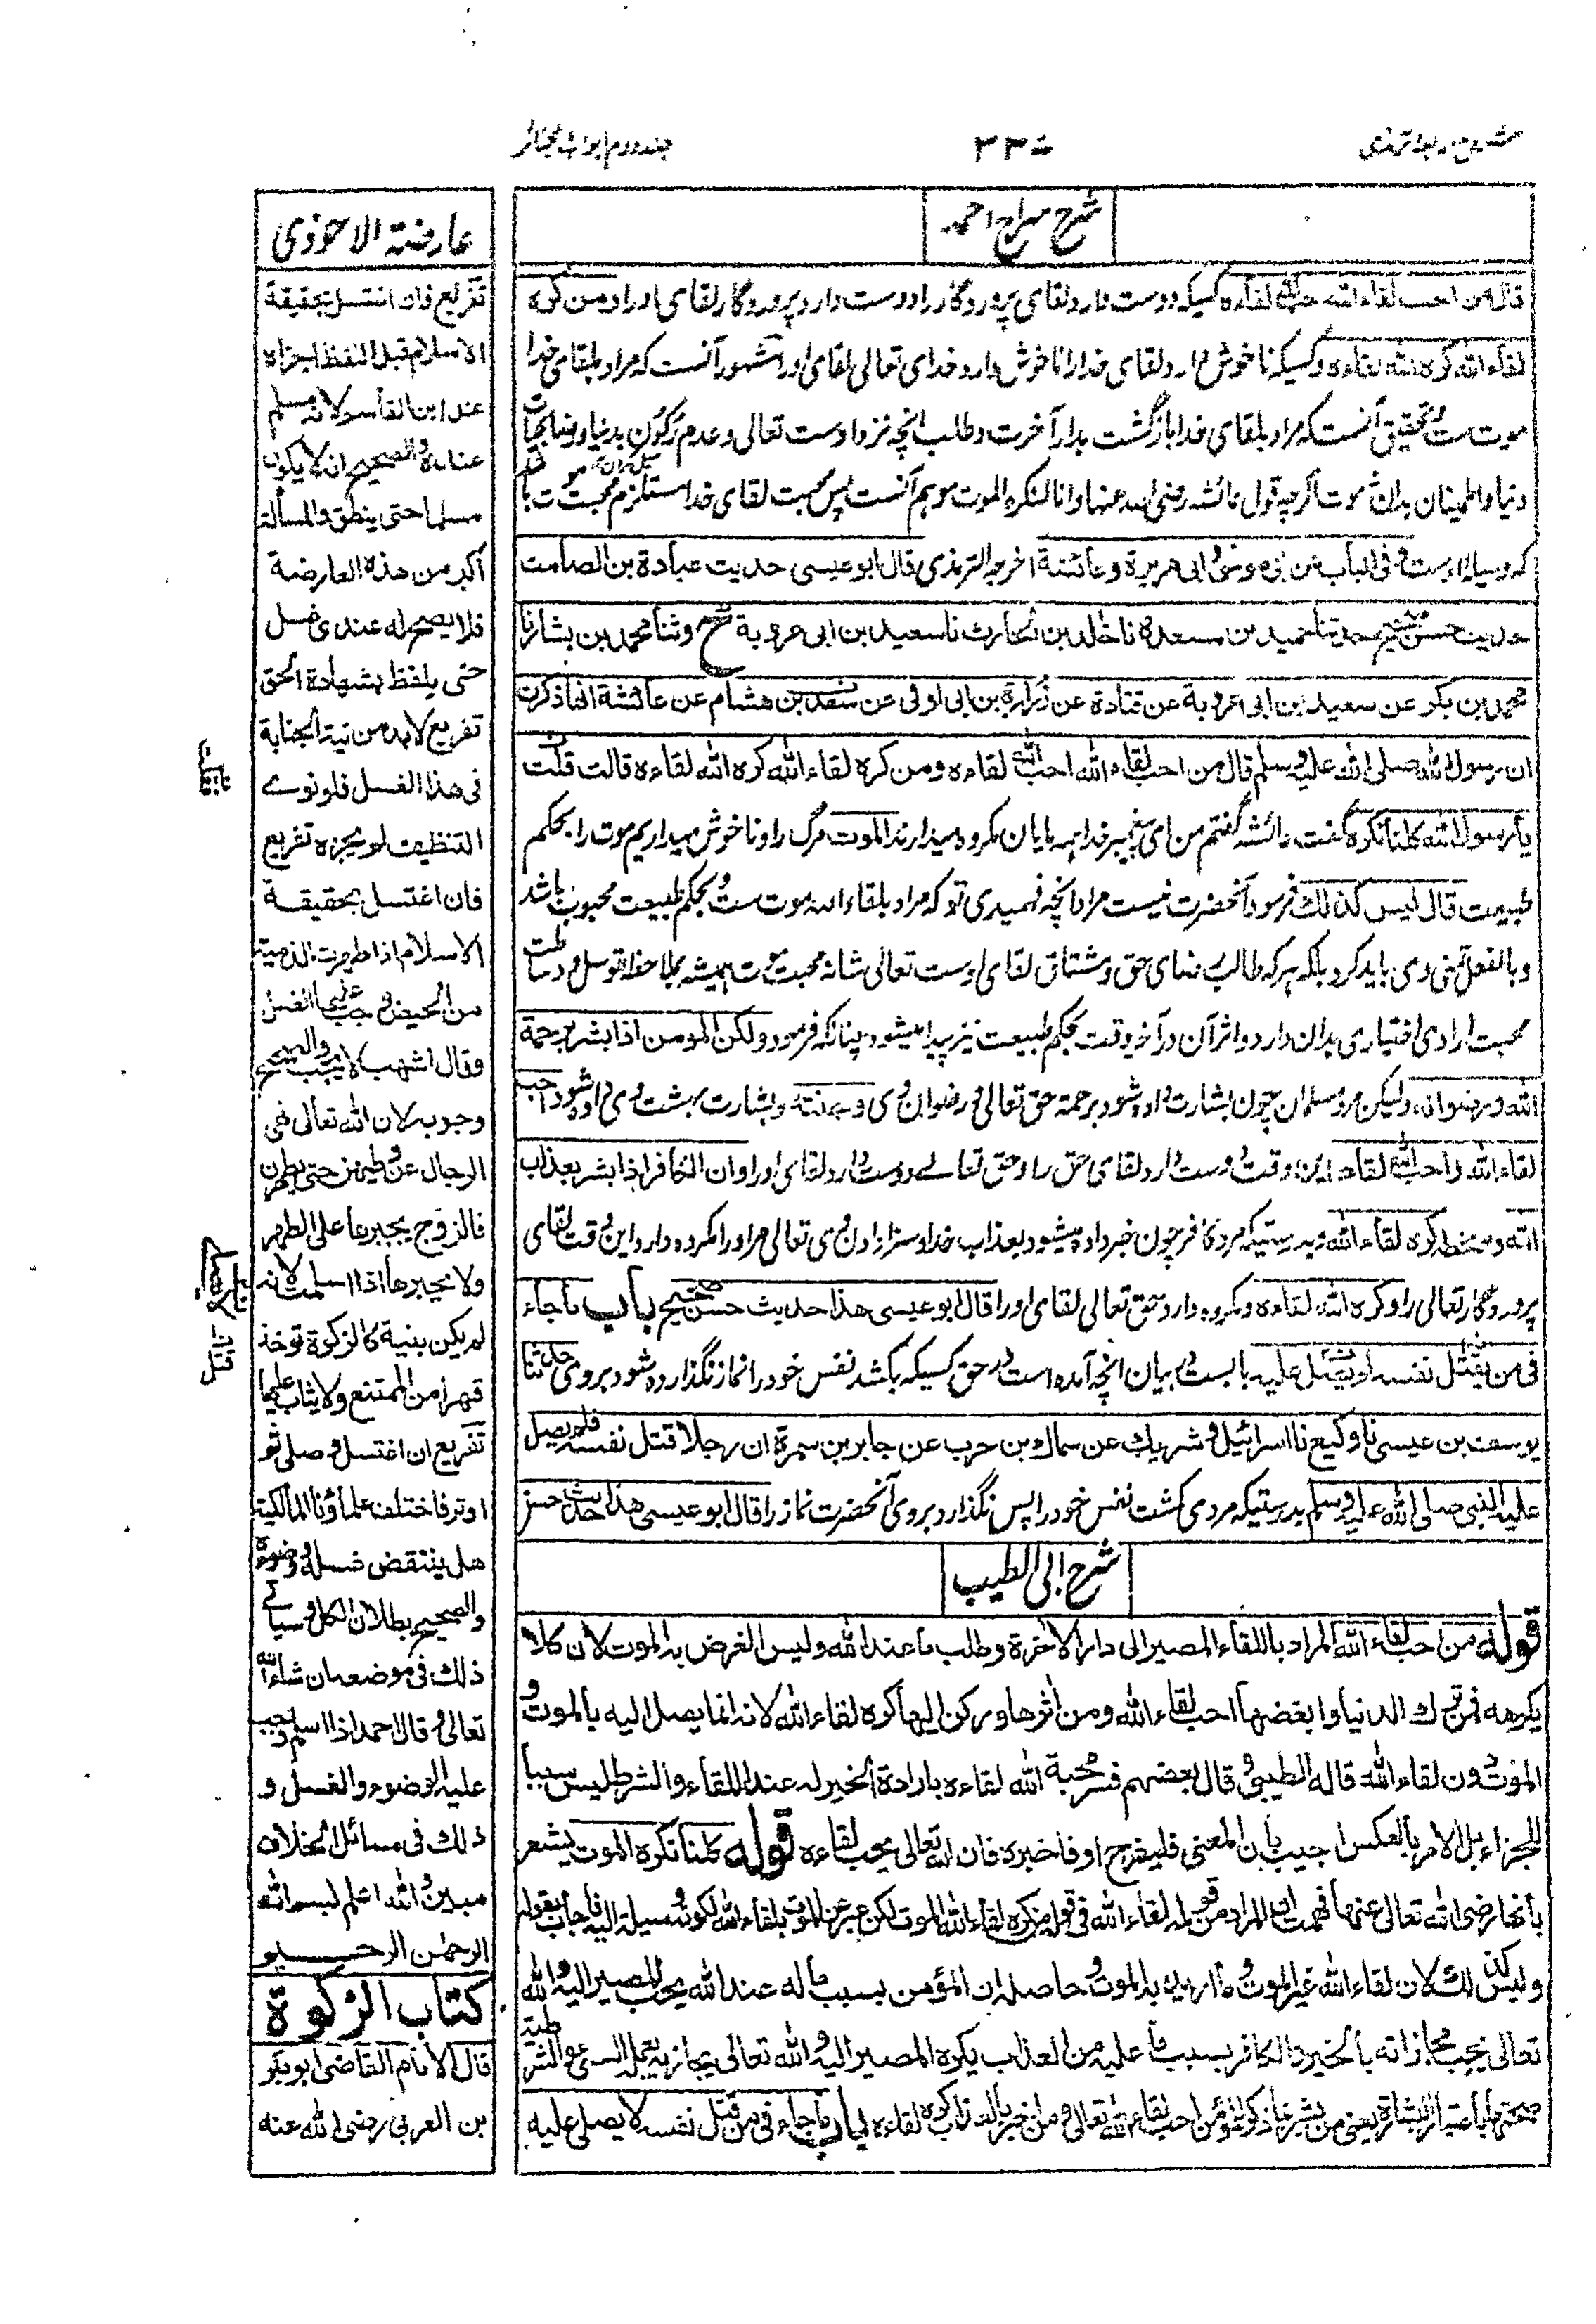 شرح سراج احمد
قال من احب لقاء الله احب الله لقاءه کسیکه دوست دارد لقای پروردگار را دوست دارد پروردگار لقای او را و من کره
لقاء الله کره الله لقاءه و کسیکه ناخوش دارد لقای خدا را ناخوش دارد خدای تعالی لقای او را مشهور آنست که مراد بلقای خدا
موت ست و تحقیق آنست که مراد بلقای خدا بازگشت بدار آخرت و طلب انچه نزد اوست تعالی و عدم رکون بدنیا و
دنیا و اطمینان بدان موت اگرچه قول عائشه رضی الله عنها و انا لنکره الموت موهم آنست پس محبت لقای خدا مستلزم محبت موت
که وسیله اوست و فی الباب عن ابی موسی و ابی هریرة و عائشة اخرجه الترمذی قال ابو عیسی حدیث عبادة بن الصامت
حدیث حسن صحیح حدثنا حمید بن مسعدة نا خالد بن الحارث نا سعید بن ابی عروبة ح وثنا محمد بن بشار نا
محمد بن بکر عن سعید بن ابی عروبة عن قتادة عن زرارة بن ابی اوفی عن سعد بن هشام عن عائشة انها ذکرت
ان رسول الله صلی الله علیه وسلم قال من احب لقاء الله احب الله لقاءه ومن کره لقاء الله کره الله لقاءه قالت قلت
یا رسول الله کلنا نکره گفت عائشه گفتم من ای پیغمبر خدا همه مایان مکروه میدارند الموت مرگ را و ناخوش میداریم موت را بحکم
طبیعت قال لیس کذلک فرمود آنحضرت نیست مراد انچه فهمیدی تو که مراد بلقاء الله موت ست و بحکم طبیعت محبوب باشد
و بالفعل تمنی وی باید کرد بلکه هر که طالب رضای حق و مشتاق لقای اوست تعالی شانه محبت موت همیشه بملاحظه توسل و وساطت
محبت ارادی اختیاری بدان دارد و اثر آن در آخر وقت بحکم طبیعت نیز پیدا میشود چنانکه فرمود ولکن المومن اذا بشر برحمة
الله ورضوانه ولیکن مرد مسلمان چون بشارت داده شود برحمة حق تعالی و رضوان وی وجنته و بشارت بهشت وی داده شود احب
لقاء الله واحب الله لقاءه این وقت دوست دارد لقای حق را و حق تعالے دوست دارد لقای او را وان الکافر اذا بشر بعذاب
الله وسخطه کره لقاء الله و بدرستیکه مرد کافر چون خبر داده میشود بعذاب خدا و سزا دادن وی تعالی مر او را مکروه دارد این وقت لقای
پروردگار تعالی را وکره الله لقاءه و مکروه دارد حق تعالی لقای او را قال ابو عیسی هذا حدیث حسن صحیح باب ما جاء
فی من یقتل نفسه لم یصل علیه بابست در بیان انچه آمده است در حق کسیکه بکشد نفس خود را نماز نگذارده شود بروی حدثنا
یوسف بن عیسی نا وکیع نا اسرائیل و شریک عن سماک بن حرب عن جابر بن سمرة ان رجلا قتل نفسه فلم یصل
علیه النبی صلی الله علیه وسلم بدرستیکه مردی کشت نفس خود را پس نگذارد بروی آنحضرت نماز را قال ابو عیسی هذا حدیث حسن
شرح ابی الطیب
قوله من احب لقاء الله المراد باللقاء المصیر الی دار الاخرة وطلب ما عند الله ولیس الغرض به الموت لان کلا
یکرهه فمن ترک الدنیا وابغضها احب لقاء الله ومن اثرها ورکن الیها کره لقاء الله لانه انما یصل الیه بالموت و
الموت دون لقاء الله قاله الطیبی وقال بعضهم فسر محبة الله لقاءه بارادة الخیر له عند اللقاء والشرط لیس سببا
للجزاء بل الامر بالعکس اجیب بان المعنی فلیفرح او فاخبره فان الله تعالی یحب لقاءه قوله کلنا نکره الموت یشعر
بانها رضی الله تعالی عنها فهمت ان المراد من قوله لقاء الله فی قوله من کره لقاء الله الموت لکن عبر عن الموت بلقاء الله لکونه وسیلة الیه فاجاب بقوله
ولیس کذلک لان لقاء الله غیر الموت وما ارید به الموت وحاصله ان المؤمن بسبب ما له عند الله یحب المصیر الیه والله
تعالی یحب مجازاته بالخیر والکافر بسبب ما علیه من العذاب یکره المصیر الیه والله تعالی یجازیه بعمله السیئ والشرطیة
صحتها باعتبار البشارة یعنی من بشر بما ذکر للمؤمن احب لقاء الله تعالی ومن خبر بالعذاب کره لقاءه باب ما جاء فی من قتل نفسه لا یصلی علیه
عارضة الاحوذی
تفریع فان اغتسل بحقیقة
الاسلام قبل اللفظ اجزاه
عند ابن القاسم لانه مسلم
عنده والصحیح انه لا یکون
مسلما حتی ینطق والمسألة
اکبر من هذه العارضة
فلا یصح له عندی غسل
حتی یلفظ بشهادة الحق
تفریع لا بد من نیة الجنابة
فی هذا الغسل فلو نوے
التنظیف لم یجزه تفریع
فان اغتسل بحقیقة
الاسلام اذا طهرت الذمیة
من الحیض وجب علیها الغسل
وقال اشهب لا یجب والصحیح
وجوبه لان الله تعالی نهی
الرجال عن وطیهن حتی یطهرن
فالزوج یجبرها علی الطهر
ولا یجبرها اذا اسلمت لانه
لم یکن بنیة کالزکوة توخذ
قهرا من الممتنع ولا یثاب علیها
تفریع ان اغتسل وصلی ثم
اوتر فاختلف علماؤنا المالکیة
هل ینتقض غسله وضوءه
والصحیح بطلان الکل وسیاتے
ذلک فی موضعه ان شاء الله
تعالی وقال احمد اذا اسلم وجب
علیه الوضوء والغسل و
ذلک فی مسائل الخلاف
مبین والله اعلم بسم الله
الرحمن الرحیم
کتاب الزکوة
قال الامام القاضی ابو بکر
بن العربی رضی الله عنه